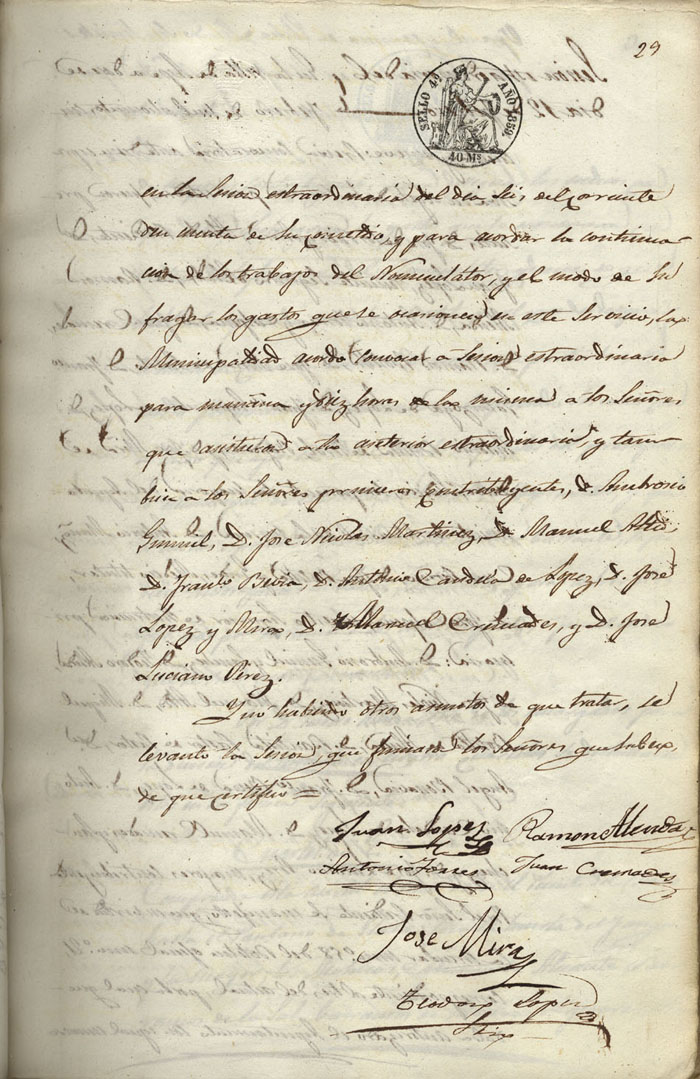 29
SELLO 4º AÑO 1859.
40 Ms
en la Sesion extraordinaria del dia seis del corriente
den cuenta de su cometido, y para acordar la continua-
cion de los trabajos del Nomenclator, y el modo de su
fragar los gastos que se ocasionen en este Servicio, la
Municipalidad acordó convocar a Sesion extraordinaria
para mañana y diez horas de la misma a los Señores
que asistieron a la anterior extraordinaria, y tam-
bien a los Señores primeros contribuyentes, D. Ambrosio
D. Jose Nicolas Martinez, D. Manuel
D. Antonio Candela de Lopez, D. José
Lopez y Mira, D. Manuel Cremades, y D. José
Luciano Perez.
Y no habiendo otros asuntos de que tratar, se
levantó la Sesion, que firmaron los Señores que saben,
de que certifico =
Juan Lopez Ramon Alenda
Antonio Torres Juan Cremades
Jose Mira
Teodoro Lopez